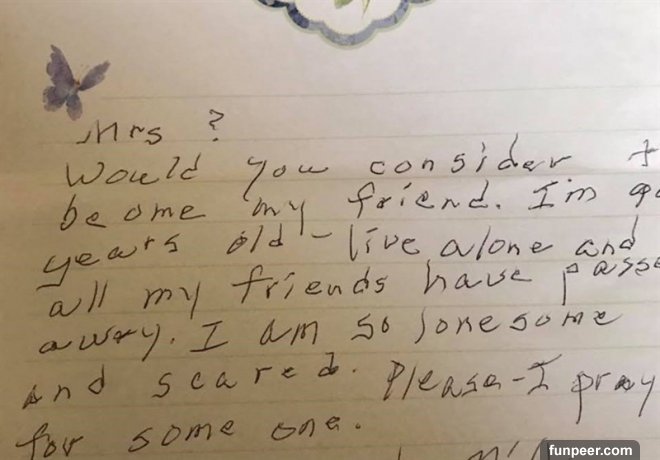 Mrs ?
Would you consider t
become my friend. I'm 90
years old - live alone and
all my friends have passe
away. I am so lonesome
and scared. Please - I pray
for some one.
funpeer.com